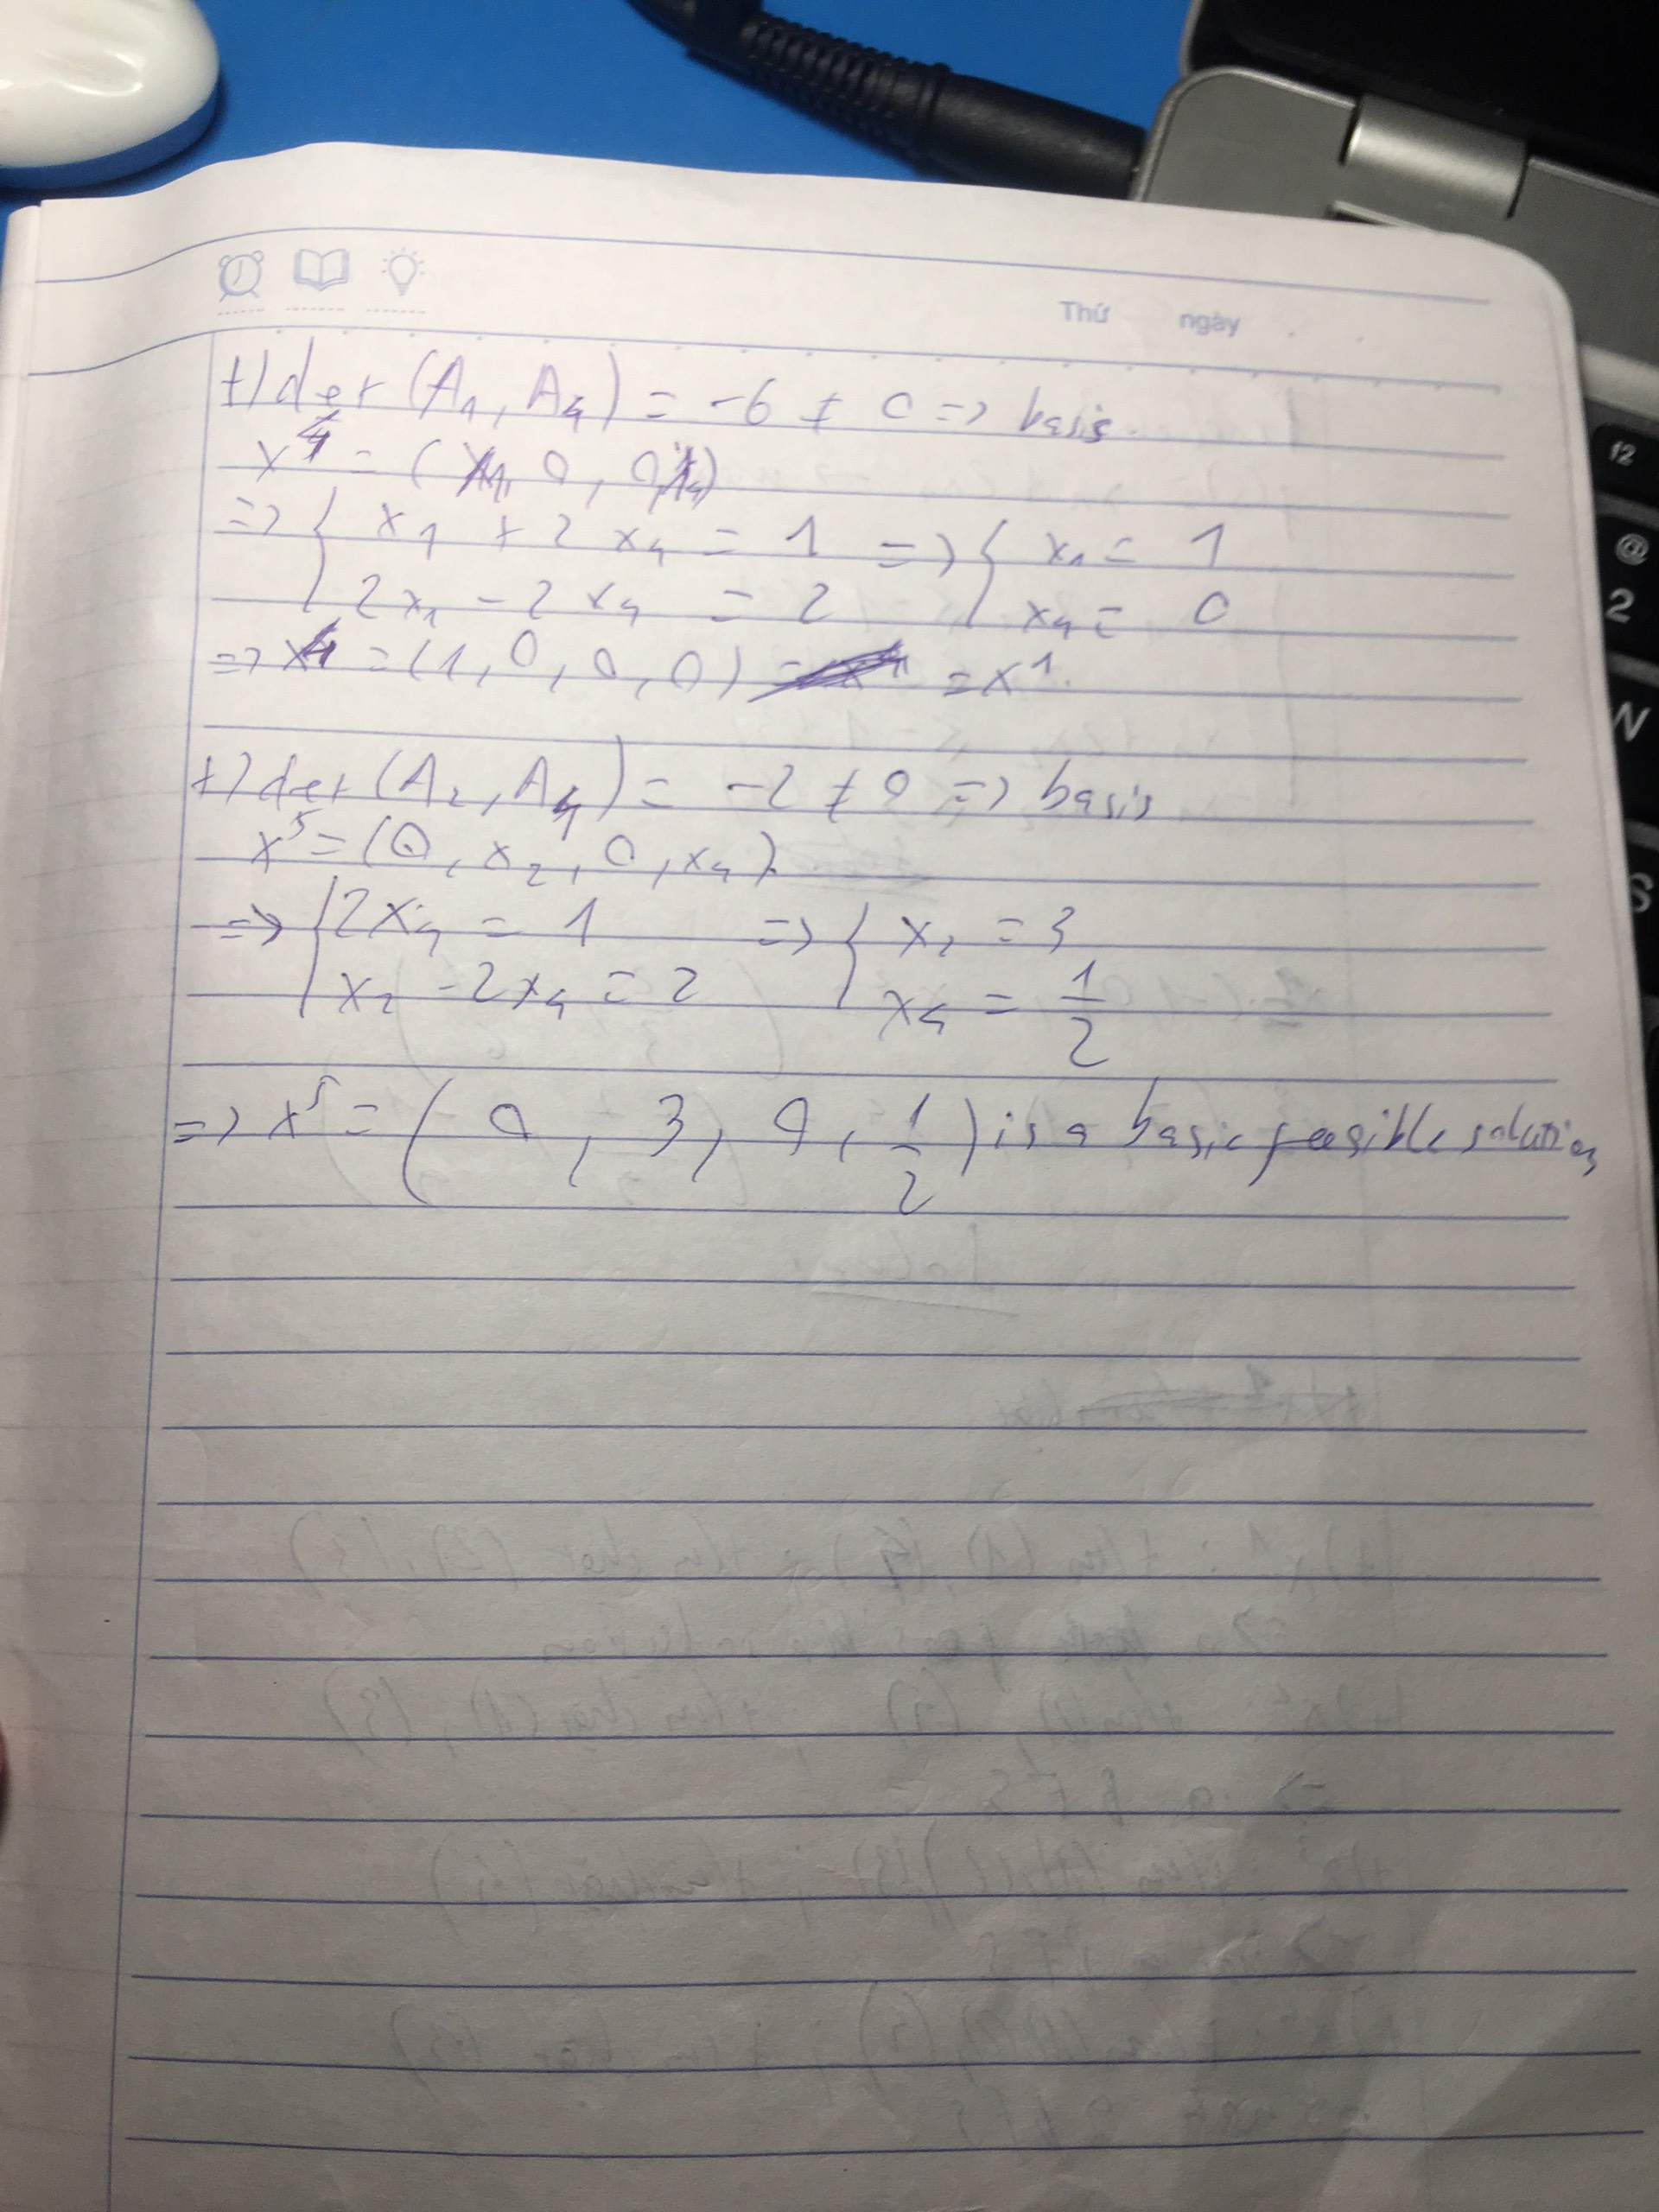 Thứ ngày
+) det (A₁, A₄) = -6 ≠ 0 => basis.
x⁴ = (x₁, 0, 0, x₄)
=> { x₁ + 2x₄ = 1 => { x₁ = 1
2x₁ - 2x₄ = 2 x₄ = 0
=> x⁴ = (1, 0, 0, 0) = x¹.
+) det (A₂, A₄) = -2 ≠ 0 => basis
x⁵ = (0, x₂, 0, x₄).
=> { 2x₄ = 1 => { x₂ = 3
x₂ - 2x₄ = 2 x₄ = 1/2
=> x⁵ = (0, 3, 0, 1/2) is a basic feasible solution
f2
@
2
N
S